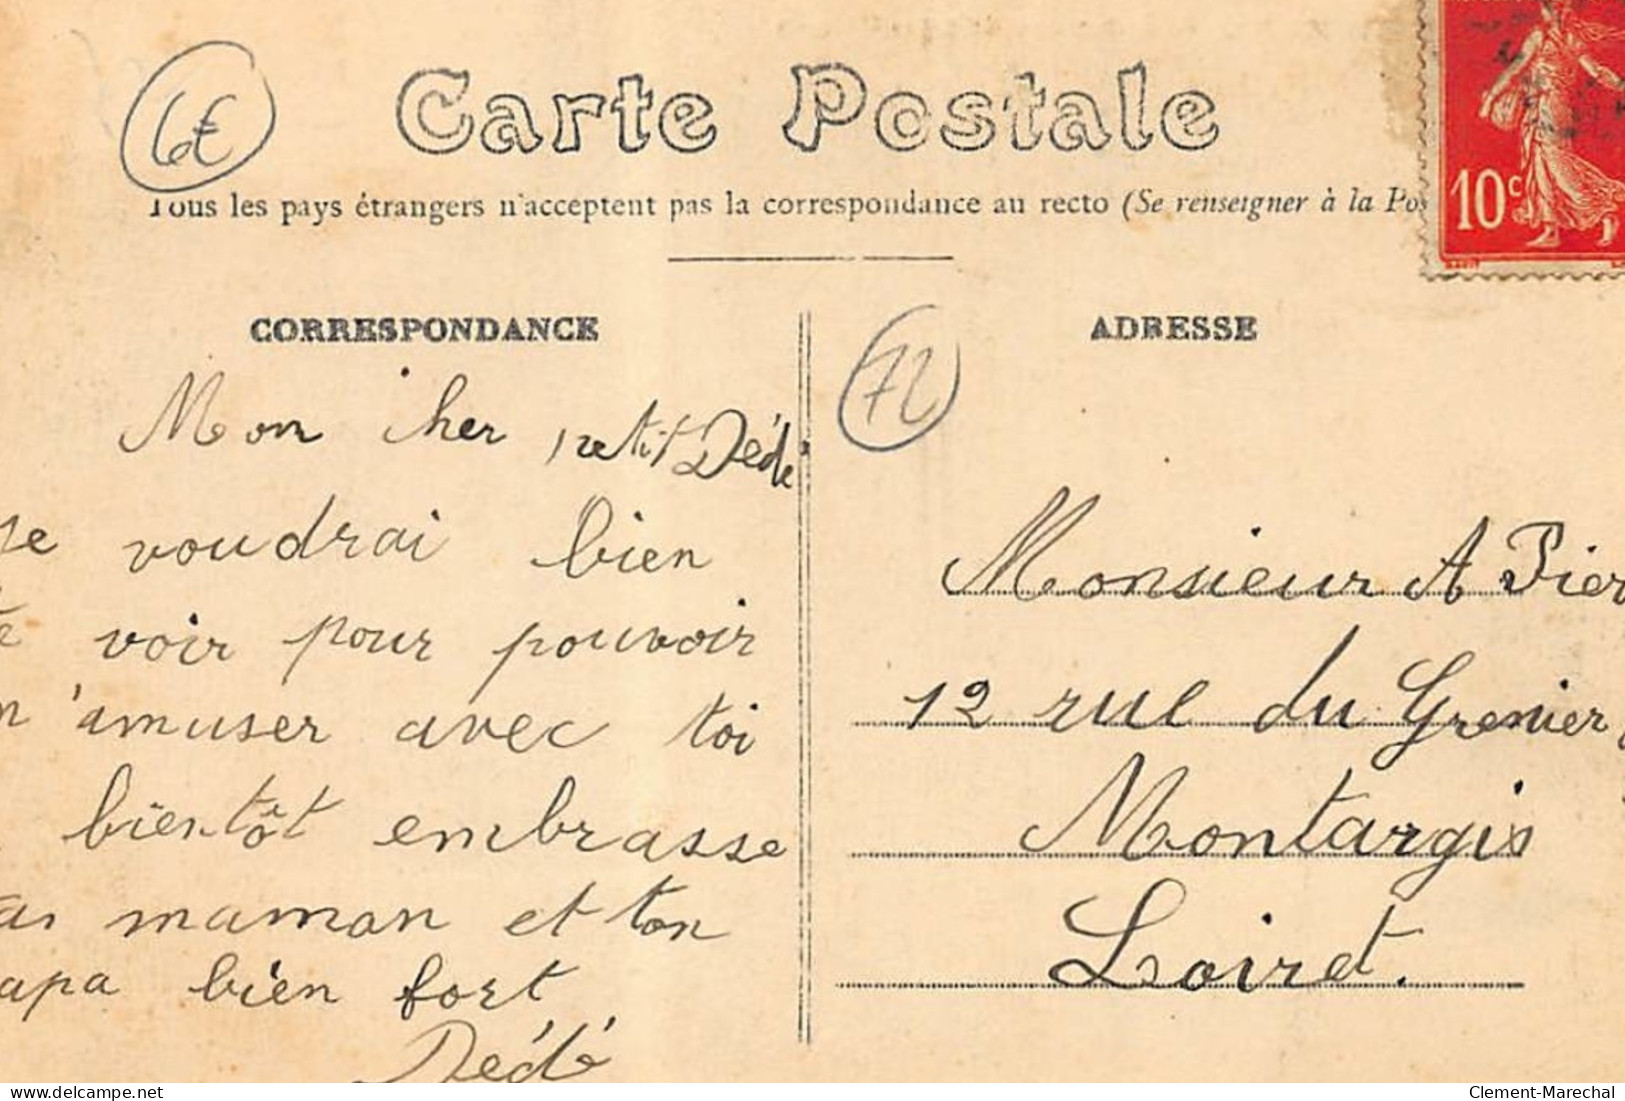 6€
Carte Postale
Tous les pays étrangers n'acceptent pas la correspondance au recto (Se renseigner à la Pos
10c
CORRESPONDANCE
Mon cher petit Dédé
Je voudrai bien
te voir pour pouvoir
m'amuser avec toi
bientôt embrasse
maman et ton
apa bien fort
Dédé
72
ADRESSE
Monsieur A Pier
12 rue du Grenier
Montargis
Loiret.
delcampe.net
Clement-Marechal